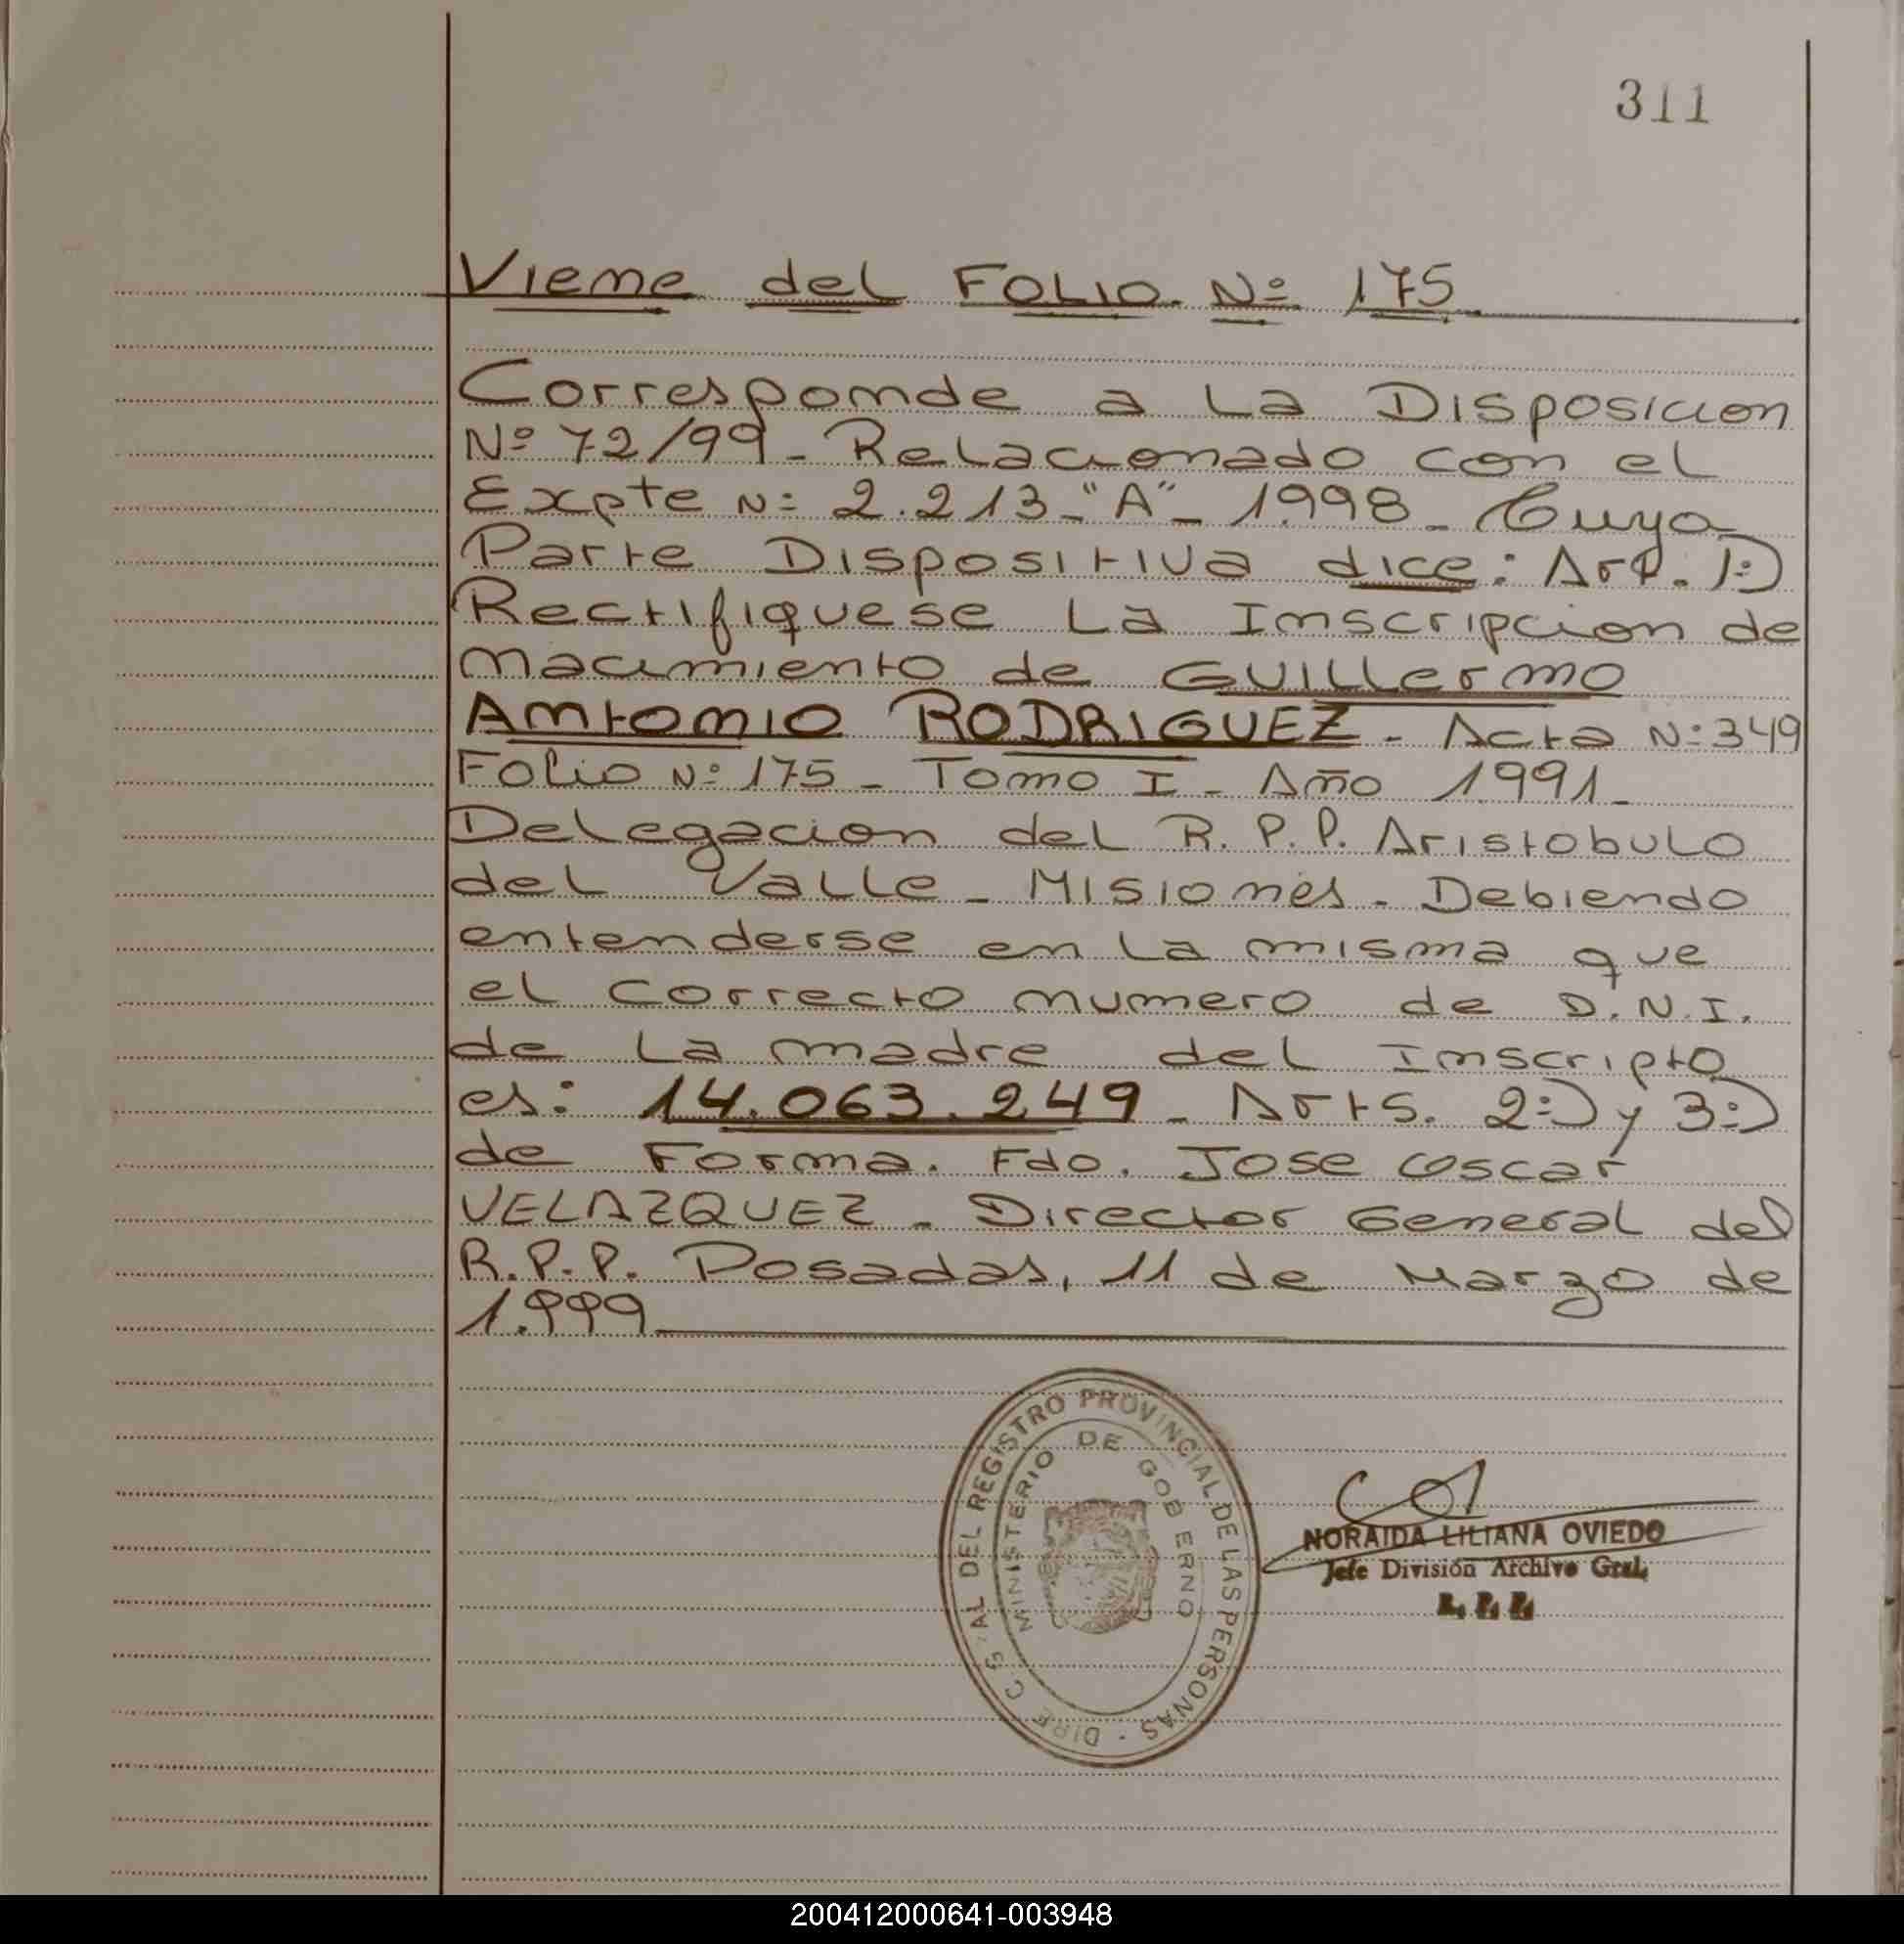 311
Viene del FOLIO Nº 175
Corresponde a La Disposicion
Nº 72/99 - Relacionado con el
Expte Nº 2.213 - "A" - 1998 - Cuya
Parte Dispositiva dice: Art. 1º)
Rectifiquese La Inscripcion de
nacimiento de Guillermo
Antonio RODRIGUEZ - Acta Nº 349
Folio Nº 175 - Tomo I - Año 1991 -
Delegacion del R. P. P. Aristobulo
del Valle - Misiones - Debiendo
entenderse en la misma que
el correcto numero de D.N.I.
de La madre del Inscripto
es: 14.063.249 - Arts. 2º) y 3º)
de Forma. Fdo. Jose Oscar
VELAZQUEZ - Director General del
R.P.P. Posadas, 11 de Marzo de
1.999
REGISTRO PROVINCIAL DE LAS PERSONAS
MINISTERIO DE GOBIERNO
NORAIDA LILIANA OVIEDO
Jefe División Archivo Gral.
200412000641-003948